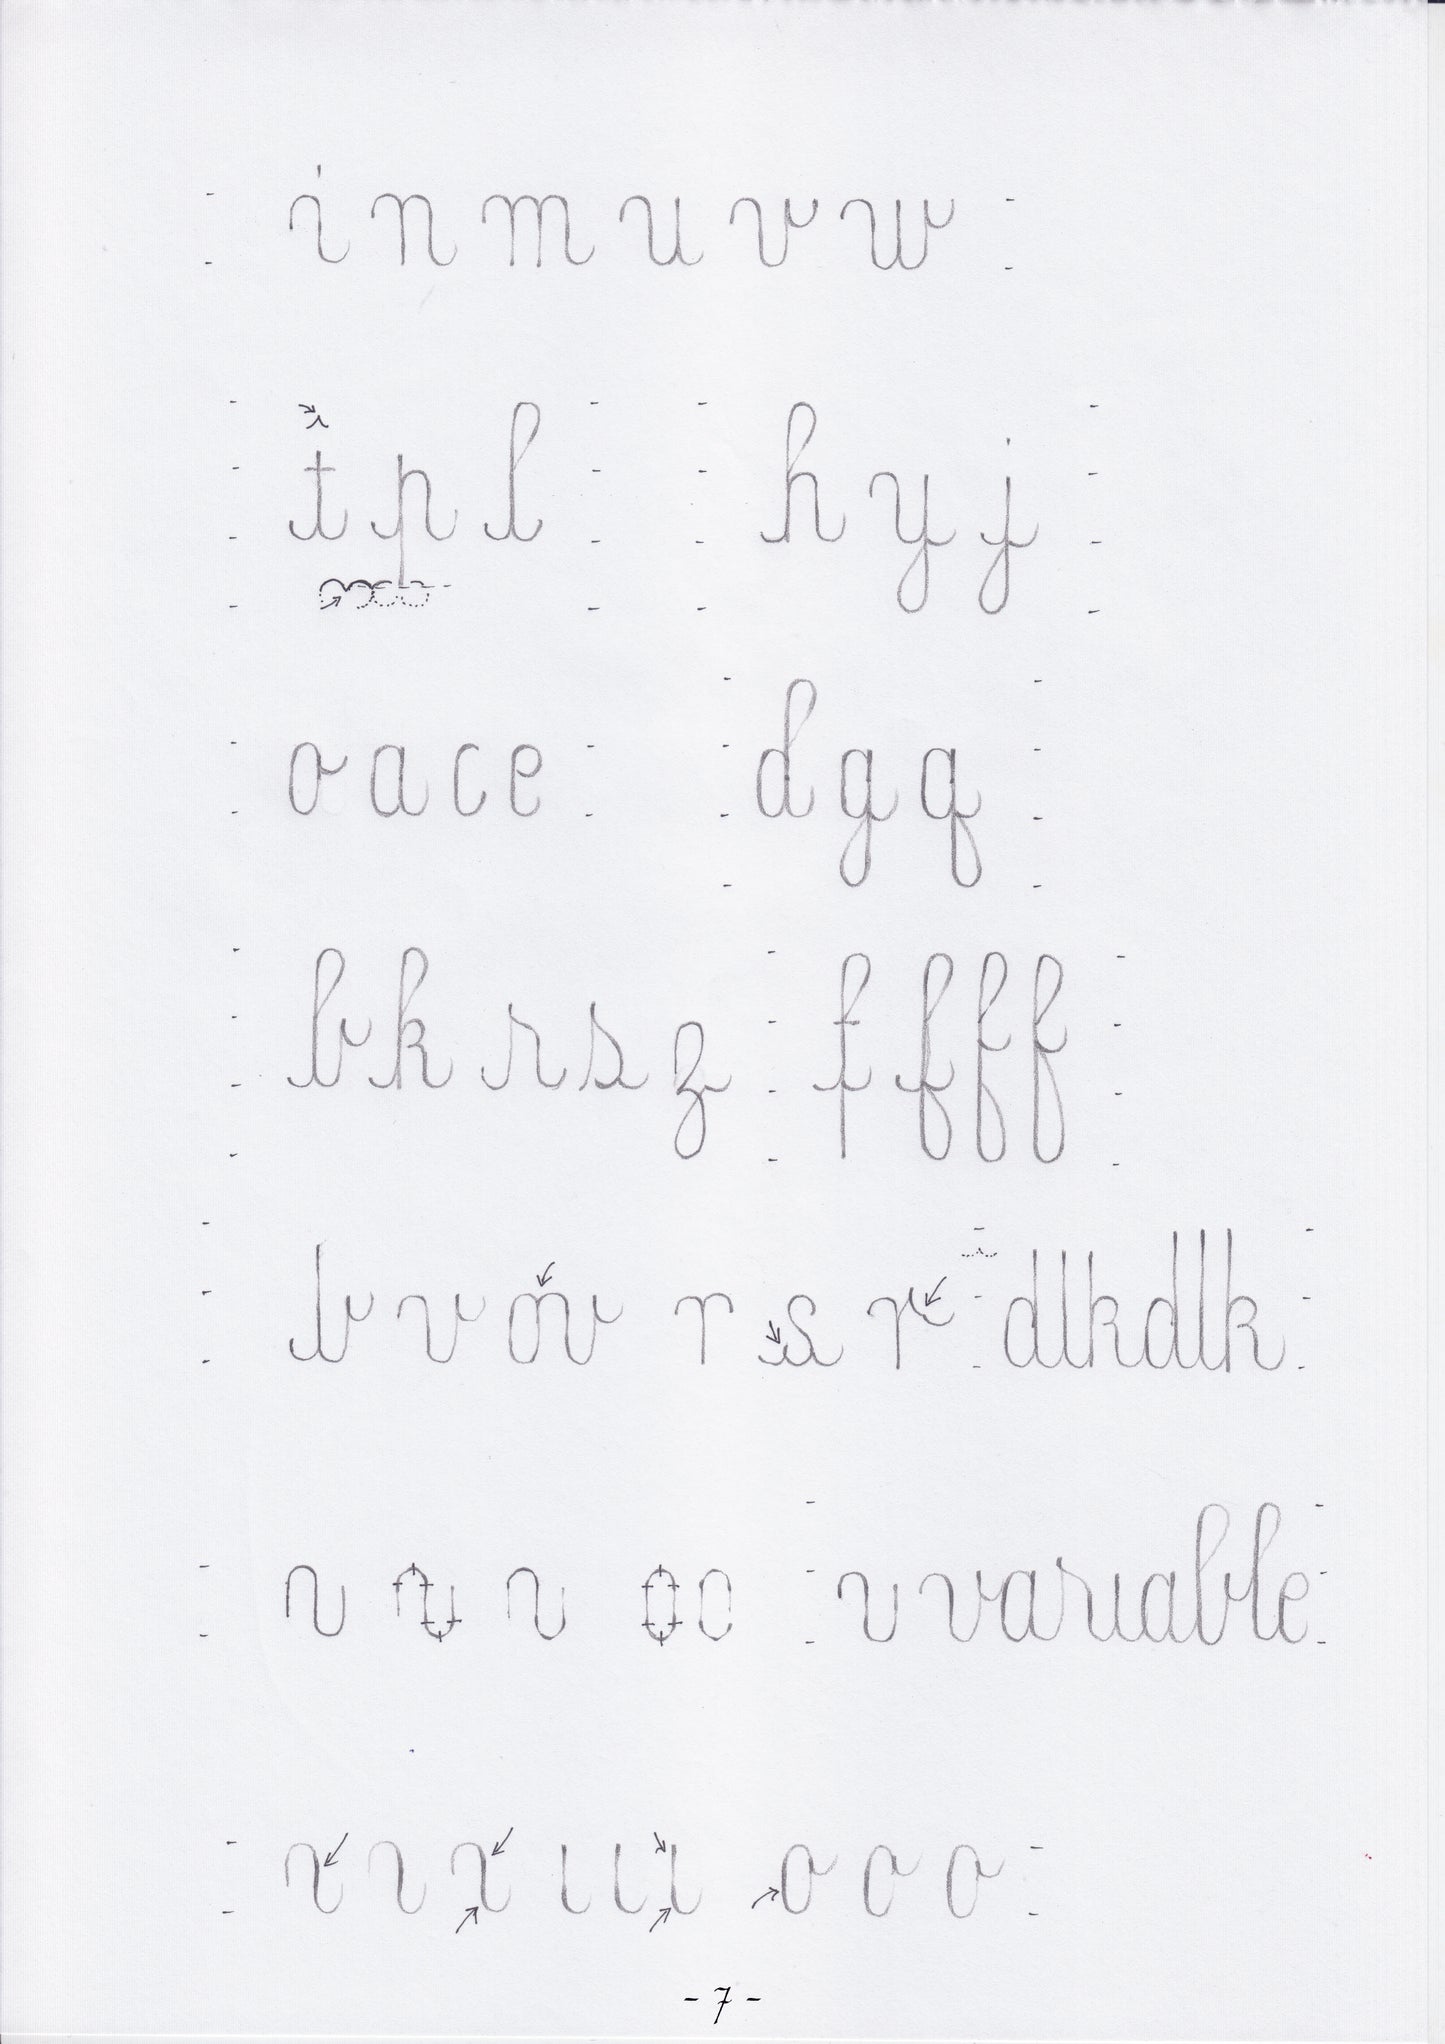 i n m u v w
t p l h y j
o a c e d g q
b k r s z f f f f
b v ov r s r dlkdlk
o v variable
o o o
- 7 -